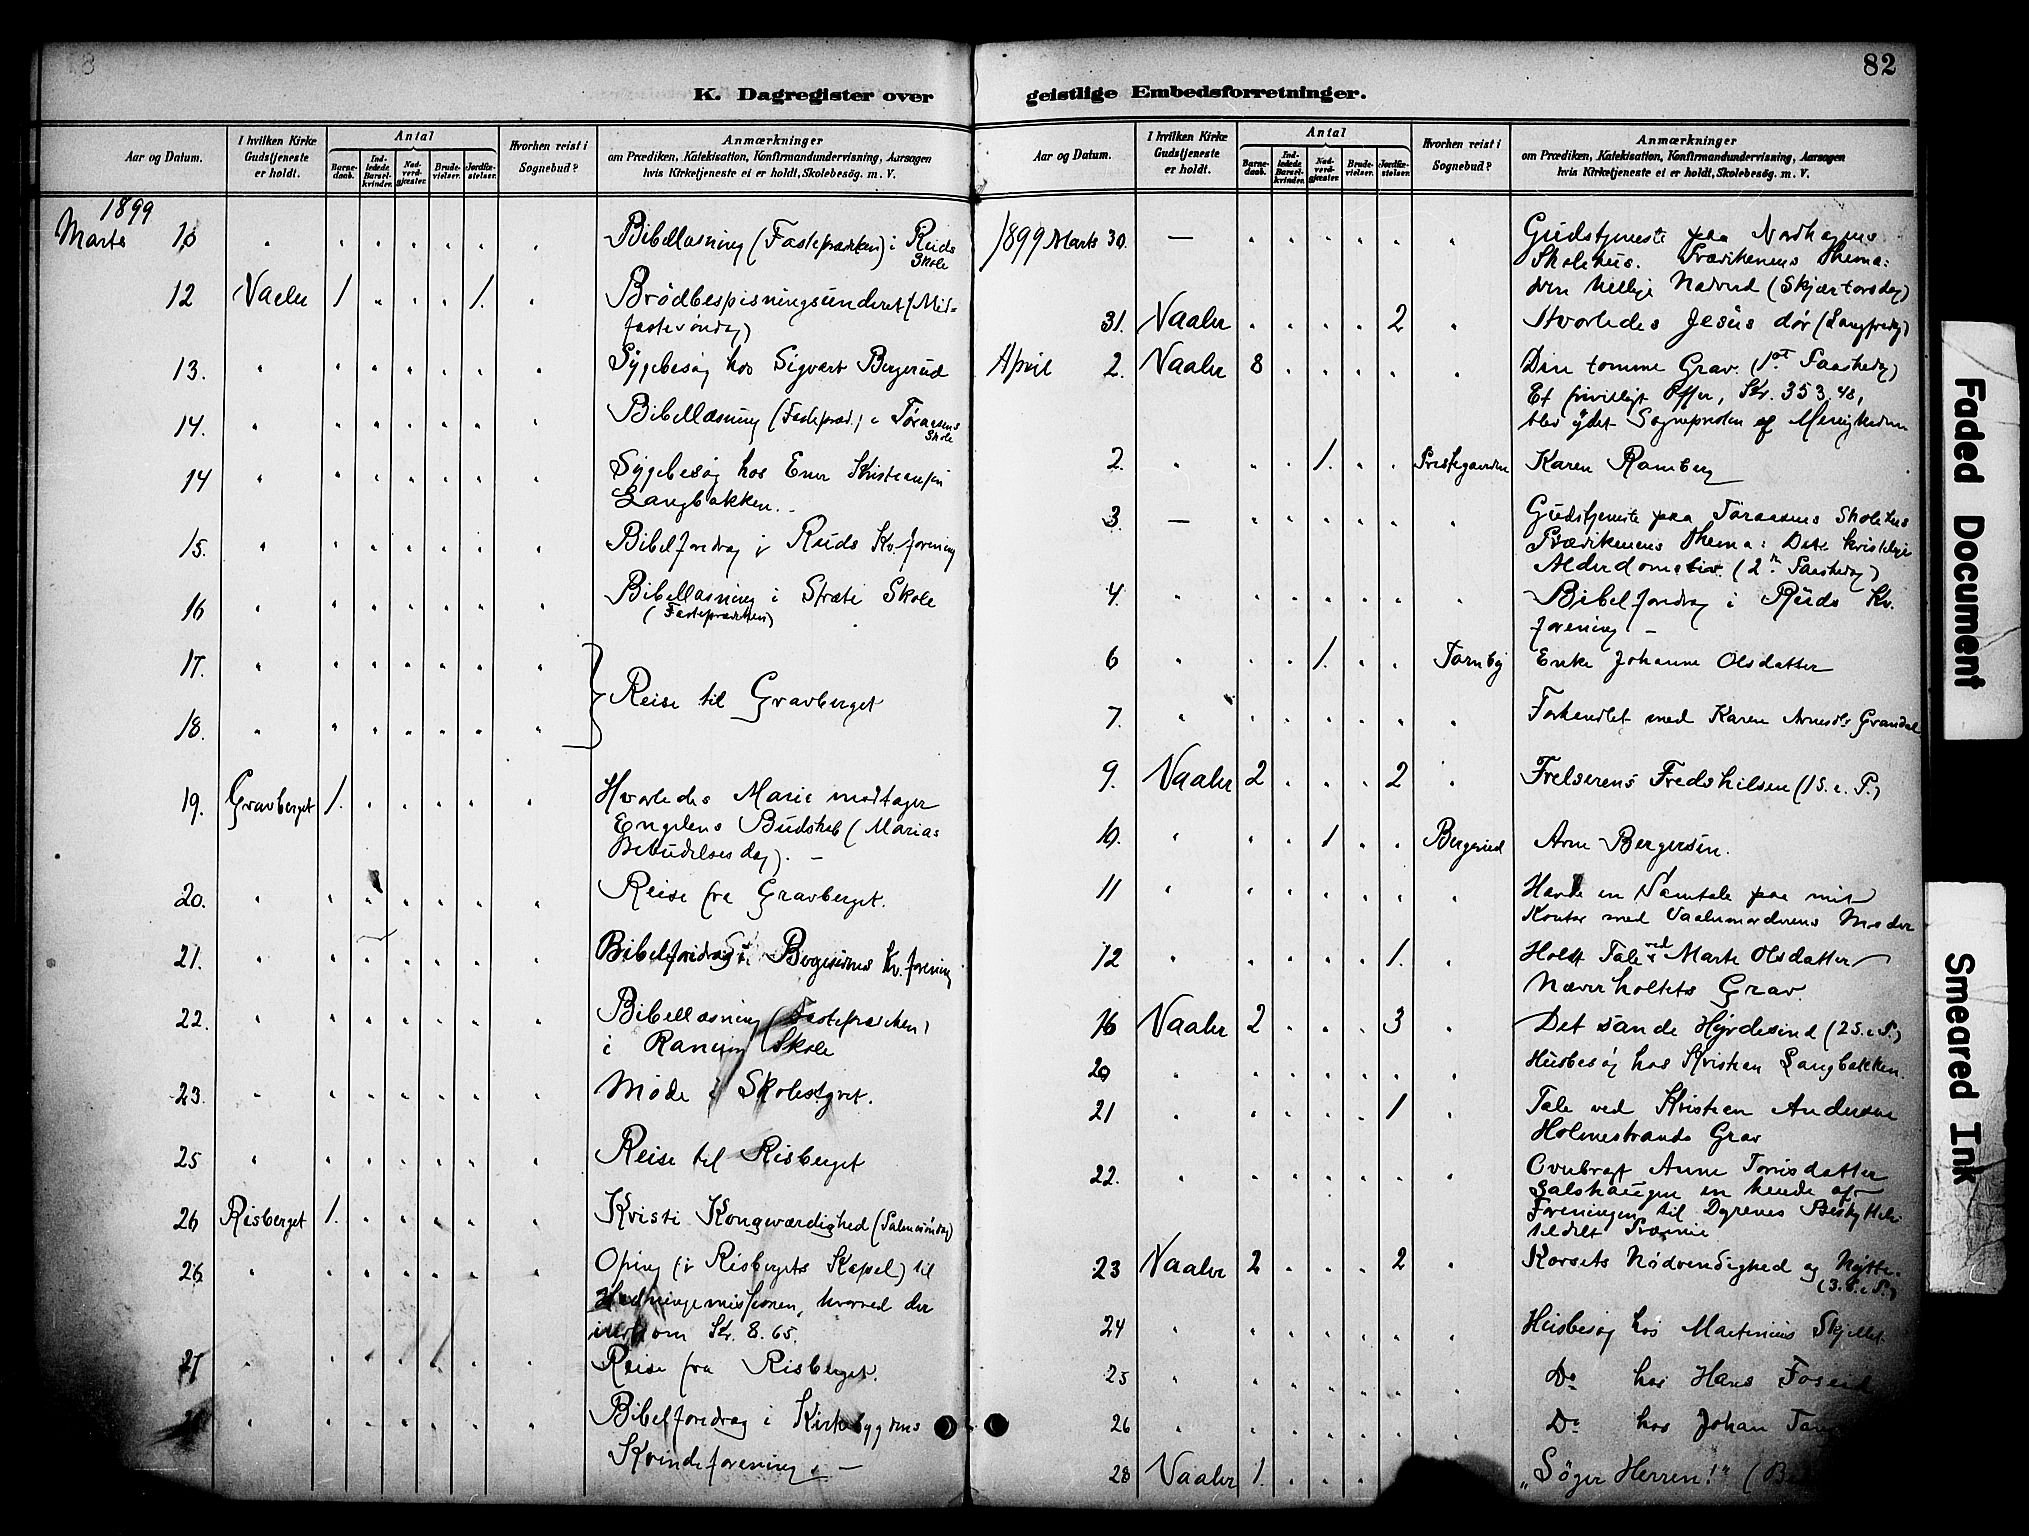 82
K. Dagregister over geistlige Embedsforretninger.
Aar og Datum.
I hvilken Kirke Gudstjeneste er holdt.
Antal
Barne-daab.
Ind-ledede Barsel-kvinder.
Nad-verd-gjæster.
Brude-vielser.
Jordfæ-stelser.
Hvorhen reist i Sognebud?
Anmærkninger
om Prædiken, Katekisation, Konfirmandundervisning, Aarsagen
hvis Kirketjeneste ei er holdt, Skolebesøg. m. V.
1899
Marts 10 Bibellæsning (Fasteprædiken) i Ruds
Skole
12 Vaaler 1 1. Brødbespisningsunderet (Mid-
fastesøndag)
13. Sygebesøg hos Sigvart Bergerud
14. Bibellæsning (Fastepræd.) i Toraasens
Skole
14 Sygebesøg hos Ener Kristiansen
Langbakken.
15. Bibelforedrag i Ruds Kv.forening
16 Bibellæsning i Stræte Skole
(Fasteprædiken)
17.
Reise til Gravberget
18.
19. Gravberget 1. Hvorledes Marie modtager
Engelens Budskab (Marias
Bebudelsesdag). –
20. Reise fra Gravberget.
21. Bibelforedrag i Kv.forening
22. Bibellæsning (Fasteprædiken)
i Skole
23. Møde i Skolestyret.
25 Reise til Risberget
26 Risberget 1. Kristi Kongeværdighed (Palmesøndag)
26 Ofring (i Risbergets Kapel) til
Hedningemissionen, hvorved der
indkom Kr. 8.65.
27 Reise fra Risberget.
Bibelforedrag i Kirkebygdens
Kvindeforening. –
Aar og Datum.
I hvilken Kirke Gudstjeneste er holdt.
Antal
Barne-daab.
Ind-ledede Barsel-kvinder.
Nad-verd-gjæster.
Brude-vielser.
Jordfæ-stelser.
Hvorhen reist i Sognebud?
Anmærkninger
om Prædiken, Katekisation, Konfirmandundervisning, Aarsagen
hvis Kirketjeneste ei er holdt, Skolebesøg. m. V.
1899 Marts 30. — Gudstjeneste paa Nordhagens
Skolehus. Prædikenens Thema:
den hellige Nadverd (Skjærtorsdag)
31. Vaaler 2 Hvorledes Jesus dør (Langfredag)
April 2. Vaaler 8 Den tomme Grav. (1st Paaskedag)
Et frivilligt Offer, Kr. 353.48,
blev ydet Sognepresten af Menigheden
2. 1. Prestegaarden Karen Ramberg
3. — Gudstjeneste paa Toraasens Skolehus
Prædikenens Thema: Det kristelige
Alderdomsliv. (2n Paaskedag)
4. Bibelforedrag i Ruds Kv.
forening –
6 1. Tornby Enke Johanne Olsdatter
7. Forhandlet med Karen Arnesdt.
9. Vaaler 2 2 Frelserens Fredshilsen (1 S. e. P.)
10. 1 Bergerud Arne Bergersen.
11 Havde en Samtale paa mit
Kontor med Moder
12 1. Holdt Tale ved Marte Olsdatter
Næverholtets Grav.
16 Vaaler 2 3 Det sande Hyrdesind (2 S. e. P.)
20 Husbesøg hos Kristian Langbakken.
21 1 Tale ved Kristian Andersen
Holmestrands Grav
22. Overbragt Anne
en hende af
Foreningen til Dyrenes Beskyttelse
tildelt Præmie.
23 Vaaler 2 2 Korsets Nødvendighed og Nytte.
(3. S. e. P.)
24 Husbesøg hos Martinius
25 Do hos Hans
26 Do hos Johan
28 Vaaler 1. „Søger Herren!“
Faded Document
Smeared Ink